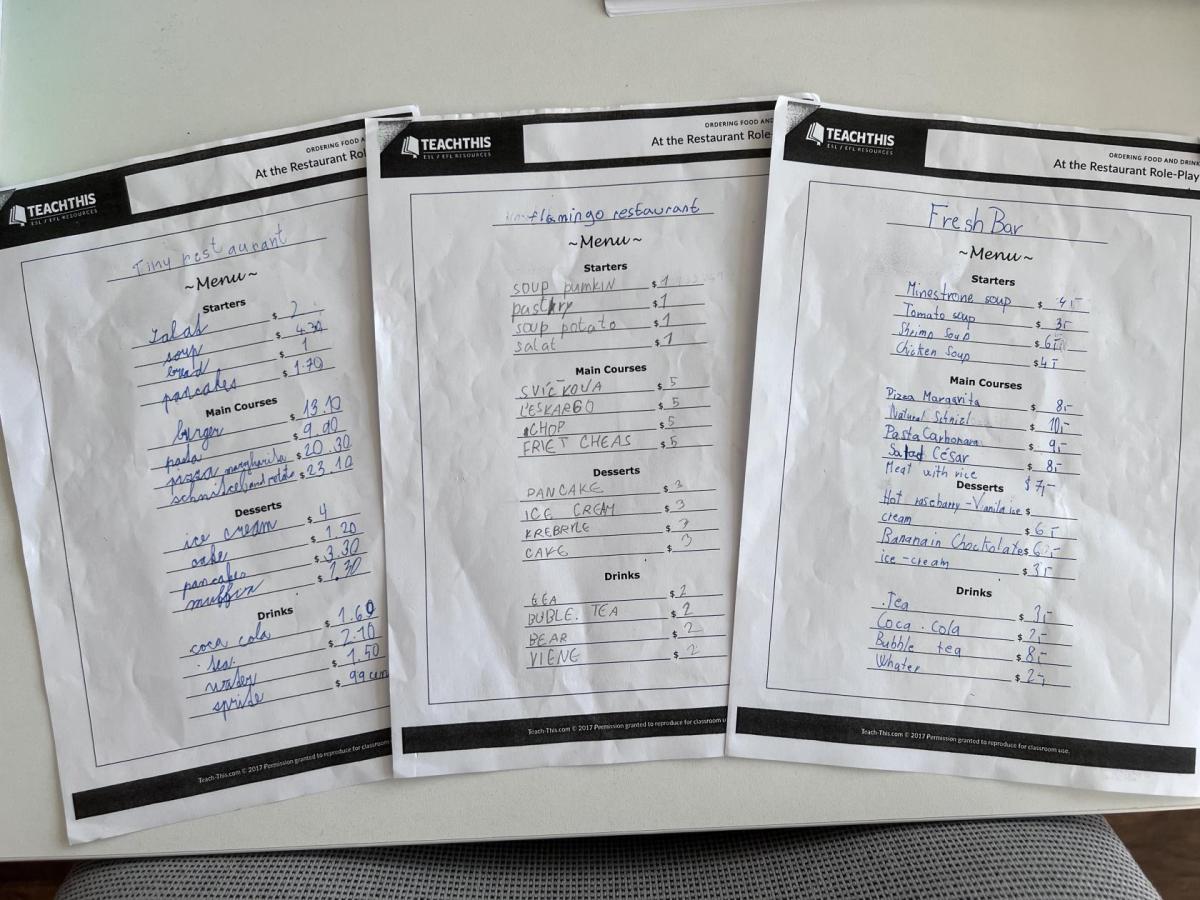 TEACHTHIS
ESL / EFL RESOURCES
ORDERING FOOD A
At the Restaurant Rol
Tiny restaurant
~Menu~
Starters
salat $ 2
soup $ 4.30
bread $ 1
pancakes $ 1.70
Main Courses
burger $ 13.10
pasta $ 9.90
pizza margharita $ 20.30
schnitzel and potato $ 23.10
Desserts
ice cream $ 4
cake $ 1.20
pancakes $ 3.30
muffin $ 1.30
Drinks
coca cola $ 1.60
tea $ 2.10
water $ 1.50
sprite $ 99 cen
Teach-This.com © 2017 Permission granted to reproduce for classroom
TEACHTHIS
ESL / EFL RESOURCES
ORDERING FOOD AND
At the Restaurant Role-
flamingo restaurant
~Menu~
Starters
SOUP PUMKIN $ 1
pastry $ 1
soup potato $ 1
salat $ 1
Main Courses
SVÍČKOVA $ 5
L'ESKARGO $ 5
CHOP $ 5
FRIET CHEAS $ 5
Desserts
PANCAKE $ 3
ICE CREAM $ 3
KREBRYLE $ 3
CAKE $ 3
Drinks
TEA $ 2
BUBLE. TEA $ 2
BEAR $ 2
VIENE $ 2
Teach-This.com © 2017 Permission granted to reproduce for classroom u
TEACHTHIS
ESL / EFL RESOURCES
ORDERING FOOD AND DRINK
At the Restaurant Role-Play
Fresh Bar
~Menu~
Starters
Minestrone soup $ 4,-
Tomato soup $ 3,-
Shrimp Soup $ 6,-
Chicken Soup $ 4,-
Main Courses
Pizza Margarita $ 8,-
Natural Schniel $ 10,-
Pasta Carbonara $ 9,-
Salad César $ 8,-
Meat with rice $ 7,-
Desserts
Hot raseberry - Vianila ice $
cream $ 6,-
Banana in Chockolate $ 6,-
ice-cream $ 3,-
Drinks
Tea $ 3,-
Coca. Cola $ 2,-
Bubble tea $ 8,-
Whater $ 2,-
Teach-This.com © 2017 Permission granted to reproduce for classroom use.